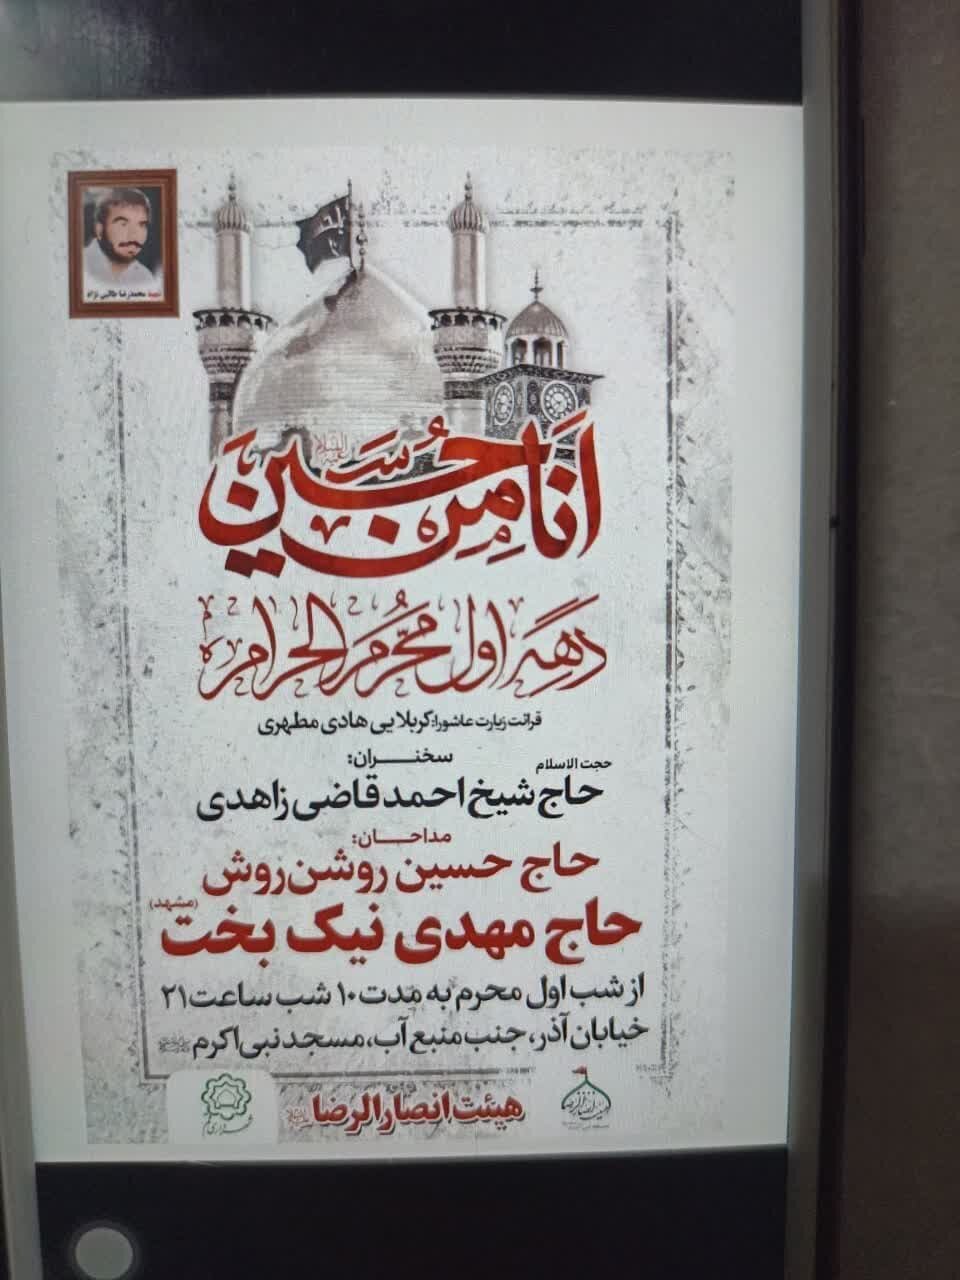 شهید محمدرضا طالبی نژاد
انا من حسین
علیه السلام
دهه اول محرم الحرام
قرائت زیارت عاشورا: کربلایی هادی مطهری
سخنران:
حجت الاسلام
حاج شیخ احمد قاضی زاهدی
مداحان:
حاج حسین روشن روش
حاج مهدی نیک بخت (مشهد)
از شب اول محرم به مدت ۱۰ شب ساعت ۲۱
خیابان آذر، جنب منبع آب، مسجد نبی اکرم
هیئت انصارالرضا
هیئت انصارالرضا
شهرداری قم